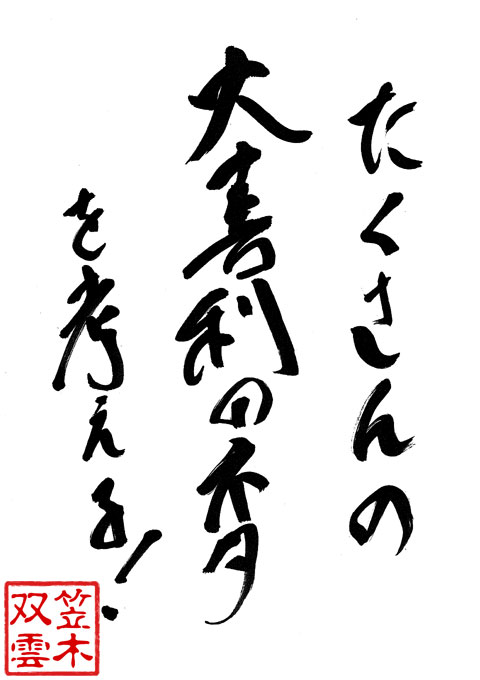 たくさんの
大喜利の
を考える!
笠木
双雲